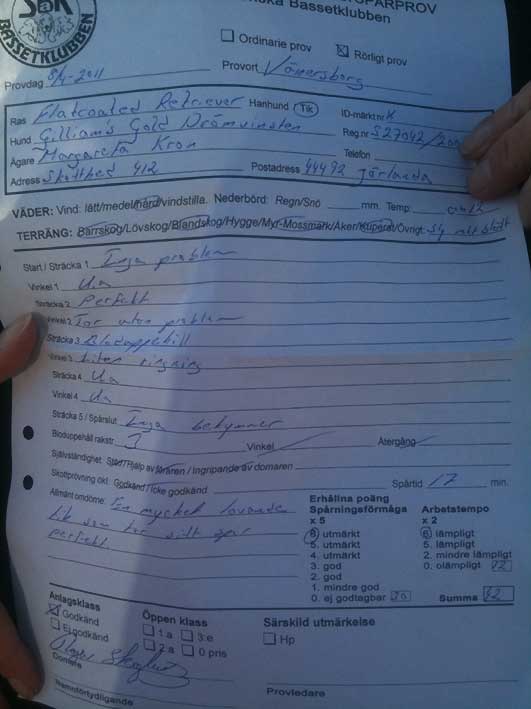 SäK
BASSETKLUBBEN
Bassetklubben
Ordinarie prov
Rörligt prov
Provdag 8/4-2011
Provort Vänersborg
Ras Flatcoated Retriever Hanhund Tik ID-märkt nr
Hund Gilliam's Gold Drömvinsten Reg.nr S27042/200
Ägare Margareta Kron Telefon
Adress Skotthed 412 Postadress 44492 Jörlanda
VÄDER: Vind: lätt/medel/hård/vindstilla. Nederbörd: Regn/Snö mm. Temp:
TERRÄNG: Barrskog/Lövskog/Blandskog/Hygge/Myr-Mossmark/Åker/Kuperat/Övrigt:
Start / Sträcka 1 Inga problem
Vinkel 1 Ua
Sträcka 2 Perfekt
Vinkel 2 Tar utan problem
Sträcka 3 Bloduppehåll
Vinkel 3 Liten ringning
Sträcka 4 Ua
Vinkel 4 Ua
Sträcka 5 / Spårslut Inga bekymmer
Bloduppehåll rakstr 3 Vinkel Återgång
Självständighet: Stöd/Hjälp av föraren / ingripande av domaren
Skottprövning okt. Godkänd / Icke godkänd Spårtid 17 min.
Allmänt omdöme: En mycket lovande
tik som tar sitt spår
perfekt
Erhållna poäng
Spårningsförmåga Arbetstempo
x 5 x 2
6. utmärkt 6. lämpligt
5. utmärkt 5. lämpligt
4. utmärkt 2. mindre lämpligt
3. god 0. olämpligt 12
2. god
1. mindre god
0. ej godtagbar 30 Summa 42
Anlagsklass
Godkänd
Ej godkänd
Öppen klass
1:a 3:e
2:a 0 pris
Särskild utmärkelse
Hp
Domare
Namnförtydligande
Provledare